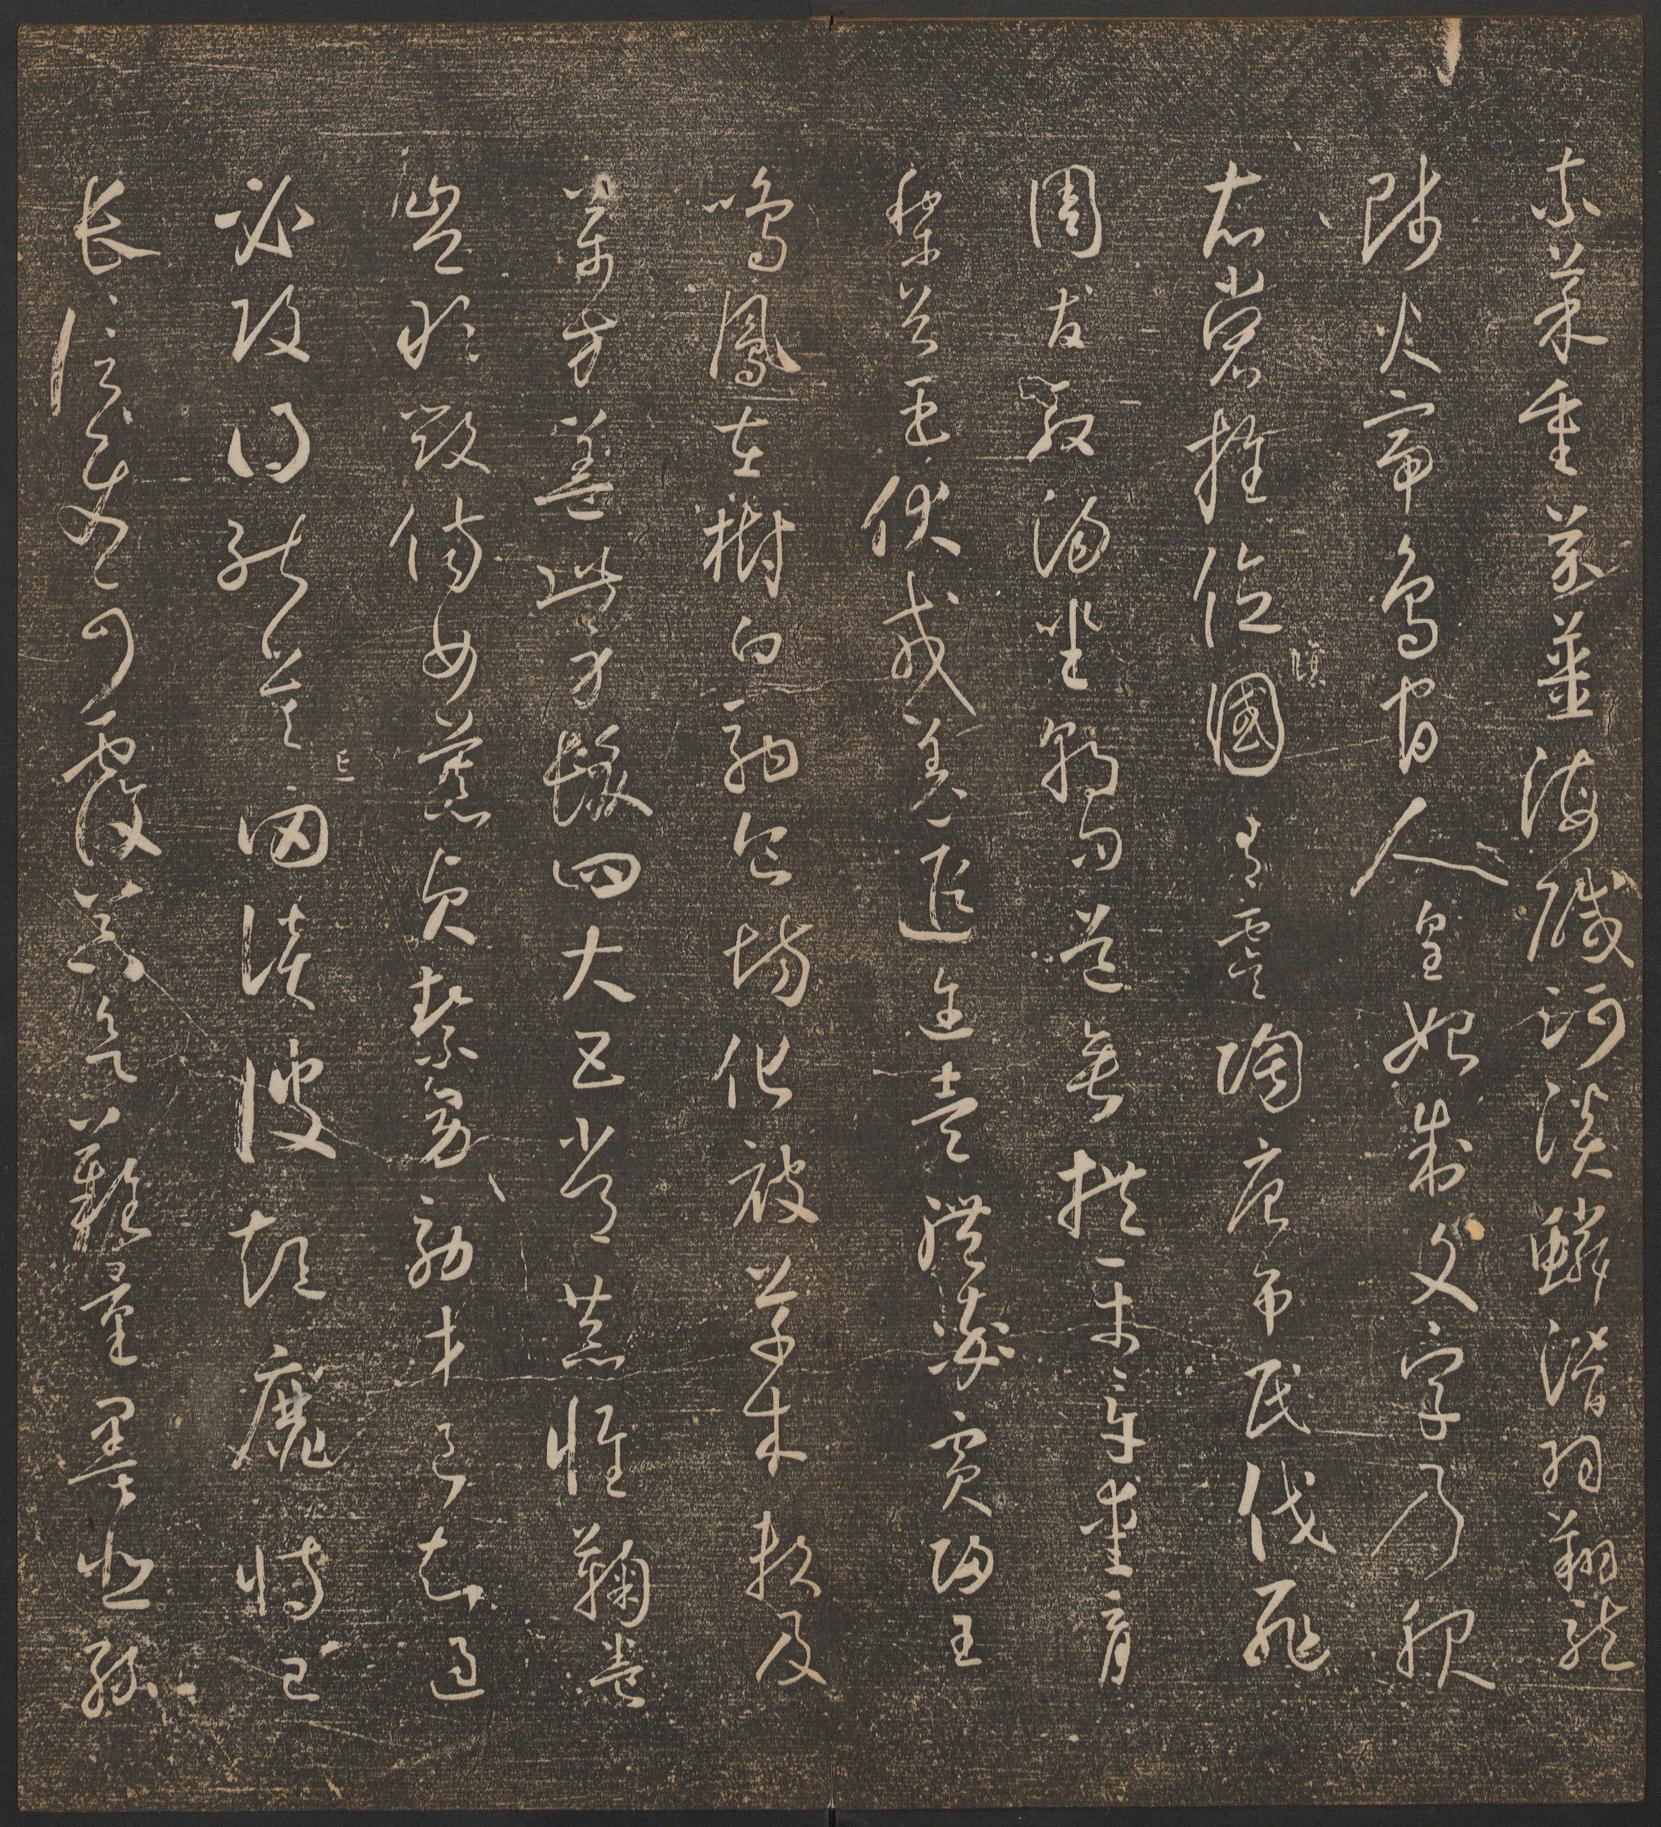 柰菜重芥薑海醎河淡鱗潛羽翔龍
師火帝鳥官人皇始制文字乃服
衣裳推位讓國有虞陶唐弔民伐罪
周發殷湯坐朝問道垂拱平章愛育
黎首臣伏戎羌遐迩壹體率賓歸王
鳴鳳在樹白駒食場化被草木賴及
萬方蓋此身髮四大五常恭惟鞠養
豈敢毀傷女慕貞絜男効才良知過
必改得能莫忘罔談彼短靡恃己
長信使可覆器欲難量墨悲絲